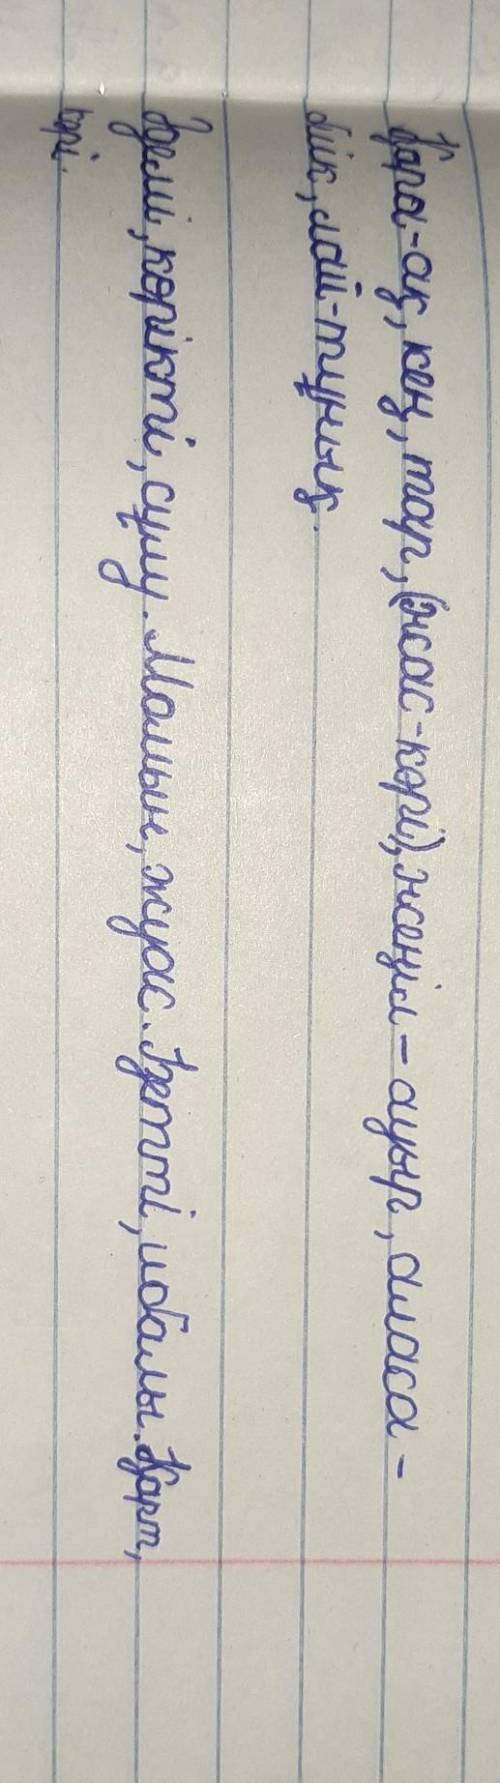 Қара-ақ, кең, тар, (жас-кәрі), жеңіл - ауыр, аласа -
биік, лай-тұнық.
Әдемі, көрікті, сұлу. Момын, жуас. Әдепті, ибалы. Қарт,
кәрі.